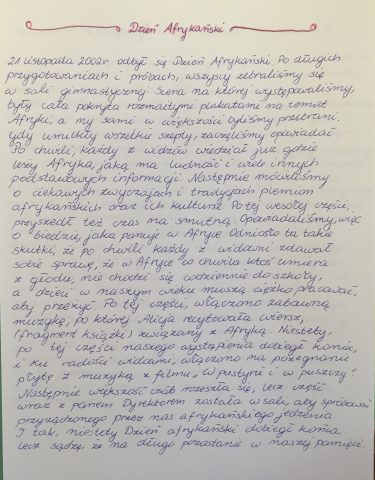 Dzień Afrykański
21 listopada 2002r. odbył się Dzień Afrykański Po długich
przygotowaniach i próbach, wszyscy zebraliśmy się
w sali gimnastycznej Scena na której występowaliśmy,
były cała pokryta rozmaitymi plakatami na temat
Afryki, a my sami w większości byliśmy przebrani.
Gdy umilkły wszelkie szepty, zaczęliśmy opowiadać.
Po chwili, każdy z widzów wiedział już gdzie
leży Afryka, jaką ma ludność i wiele innych
podstawowych informacji. Następnie mówiliśmy
o ciekawych zwyczajach i tradycjach plemion
afrykańskich oraz ich kulturze Po tej wesołej części,
przyszedł też czas na smutną. Opowiadaliśmy, więc
o biedzie, jaka panuje w Afryce Odniosło to takie
skutki, że po chwili każdy z widowni zdawał
sobie sprawę, że w Afryce co chwila ktoś umiera
z głodu, nie chodzi się codziennie do szkoły,
a dzieci w naszym wieku muszą ciężko pracować,
aby przeżyć Po tej części, włączono zabawną
muzykę, po której Alicja recytowała wiersz,
(fragment książki) związany z Afryką. Niestety,
po tej części naszego wystąpienia dobiegł koniec,
i ku radości widowni, włączono na pożegnanie
płytę z muzyką z filmu „W pustyni i w puszczy"
Następnie większość osób rozeszła się, lecz część
wraz z panem Dyrektorem została w sali, aby spróbować
przyrządzonego przez nas afrykańskiego jedzenia
I tak, niestety Dzień afrykański dobiegł końca
lecz sądzę, że na długo pozostanie w naszej pamięci.